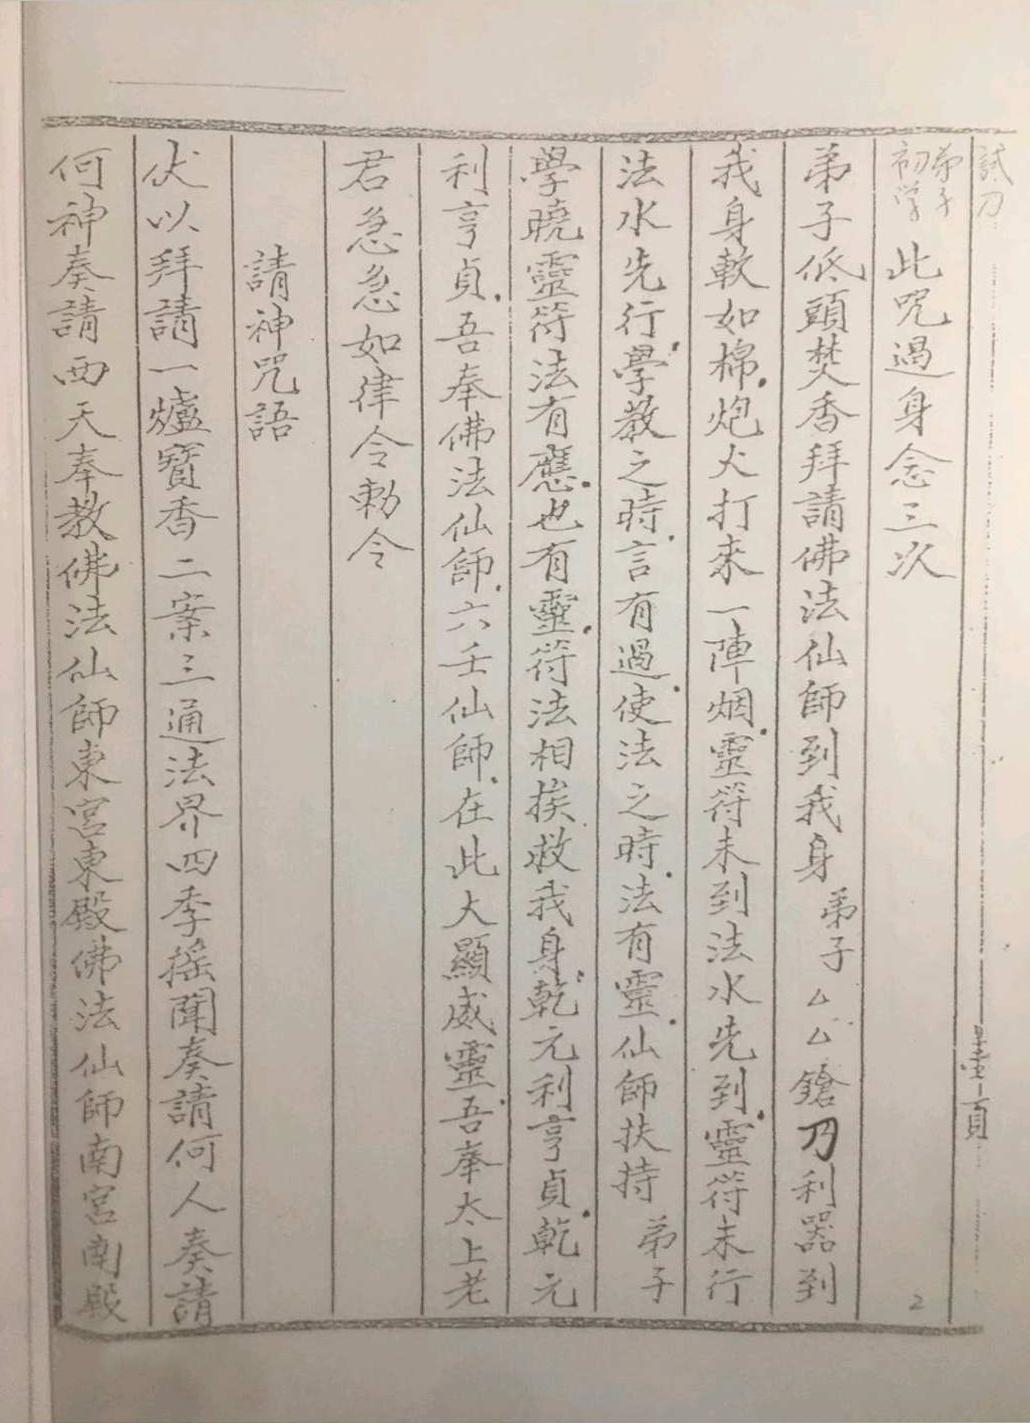 試刀
弟子初学 此咒過身念三次
弟子低頭焚香拜請佛法仙師到我身 弟子厶厶鎗刀利器到
我身軟如棉炮火打来一陣烟靈符未到法水先到靈符未行
法水先行學教之時言有過使法之時法有靈仙師扶持 弟子
學曉靈符法有應也有靈符法相挨救我身乾元利亨貞乾元
利亨貞吾奉佛法仙師六壬仙師在此大顯威靈吾奉太上老
君急急如律令勅令
請神咒語
伏以拜請一爐寶香二案三通法界四季摇聞奏請何人奏請
何神奏請西天奉教佛法仙師東宮東殿佛法仙師南宮南殿
壹頁
2